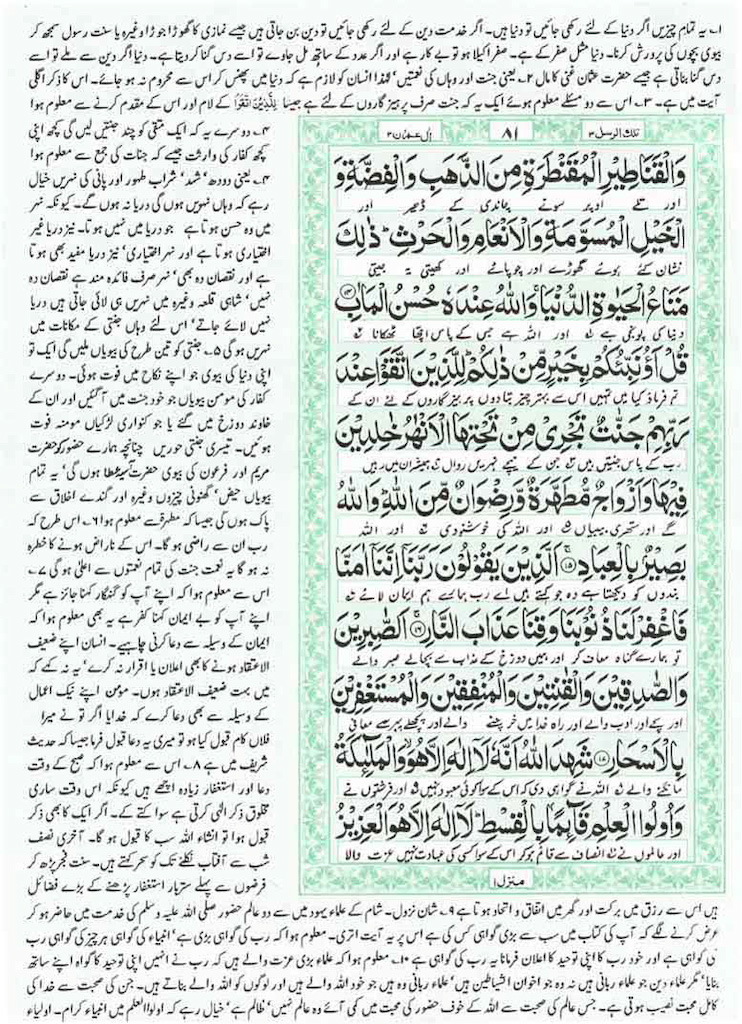 ۱۔ یہ تمام چیزیں اگر دنیا کے لئے رکھی جائیں تو دنیا ہیں۔ اگر خدمت دین کے لئے رکھی جائیں تو دین بن جاتی ہیں جیسے نمازی کا گھوڑا جوڑا وغیرہ یا سنت رسول سمجھ کر
بیوی بچوں کی پرورش کرنا۔ دنیا مثل صفر کے ہے۔ صفر اکیلا ہو تو بے کار ہے اور اگر عدد کے ساتھ مل جاوے تو اسے دس گنا کر دیتا ہے۔ دنیا اگر دین سے ملے تو اسے
دس گنا بناتی ہے جیسے حضرت عثمان غنی کا مال ۲۔ یعنی جنت اور وہاں کی نعمتیں' لہذا انسان کو لازم ہے کہ دنیا میں پھنس کر اس سے محروم نہ ہو جائے۔ اس کا ذکر اگلی
آیت میں ہے۔ ۳۔ اس سے دو مسئلے معلوم ہوئے ایک یہ کہ جنت صرف پرہیزگاروں کے لئے ہے جیسا لِلَّذِيْنَ اتَّقَوْا کے لام اور اس کے مقدم کرنے سے معلوم ہوا
تلك الرسل ۳ ۸۱ اٰل عمران ۳
وَالْقَنَاطِيْرِ الْمُقَنْطَرَةِ مِنَ الذَّهَبِ وَالْفِضَّةِ وَ
اور تلے اوپر سونے چاندی کے ڈھیر اور
الْخَيْلِ الْمُسَوَّمَةِ وَالْاَنْعَامِ وَالْحَرْثِ ؕ ذٰلِكَ
نشان کئے ہوئے گھوڑے اور چوپائے اور کھیتی یہ جیتی
مَتَاعُ الْحَيٰوةِ الدُّنْيَا ۚ وَاللّٰهُ عِنْدَهٗ حُسْنُ الْمَاٰبِ ۝۱۴
دنیا کی پونجی ہے اور اللہ ہے جس کے پاس اچھا ٹھکانا
قُلْ اَؤُنَبِّئُكُمْ بِخَيْرٍ مِّنْ ذٰلِكُمْ ؕ لِلَّذِيْنَ اتَّقَوْا عِنْدَ
تم فرماؤ کیا میں تمہیں اس سے بہتر چیز بتا دوں پرہیزگاروں کے لئے ان کے
رَبِّهِمْ جَنّٰتٌ تَجْرِيْ مِنْ تَحْتِهَا الْاَنْهٰرُ خٰلِدِيْنَ
رب کے پاس جنتیں ہیں جن کے نیچے نہریں رواں ہمیشہ ان میں رہیں
فِيْهَا وَاَزْوَاجٌ مُّطَهَّرَةٌ وَّرِضْوَانٌ مِّنَ اللّٰهِ ؕ وَاللّٰهُ
گے اور ستھری بیبیاں اور اللہ کی خوشنودی اور اللہ
بَصِيْرٌۢ بِالْعِبَادِ ۝۱۵ اَلَّذِيْنَ يَقُوْلُوْنَ رَبَّنَاۤ اِنَّنَاۤ اٰمَنَّا
بندوں کو دیکھتا ہے وہ جو کہتے ہیں اے رب ہمارے ہم ایمان لائے
فَاغْفِرْ لَنَا ذُنُوْبَنَا وَقِنَا عَذَابَ النَّارِ ۝۱۶ اَلصّٰبِرِيْنَ
تو ہمارے گناہ معاف کر اور ہمیں دوزخ کے عذاب سے بچا لے صبر والے
وَالصّٰدِقِيْنَ وَالْقٰنِتِيْنَ وَالْمُنْفِقِيْنَ وَالْمُسْتَغْفِرِيْنَ
اور سچے اور ادب والے اور راہ خدا میں خرچنے والے اور پچھلے پہر سے معافی
بِالْاَسْحَارِ ۝۱۷ شَهِدَ اللّٰهُ اَنَّهٗ لَاۤ اِلٰهَ اِلَّا هُوَ ۙ وَالْمَلٰٓئِكَةُ
مانگنے والے اللہ نے گواہی دی کہ اس کے سوا کوئی معبود نہیں اور فرشتوں نے
وَاُولُوا الْعِلْمِ قَآئِمًۢا بِالْقِسْطِ ؕ لَاۤ اِلٰهَ اِلَّا هُوَ الْعَزِيْزُ
اور عالموں نے انصاف سے قائم ہو کر اس کے سوا کسی کی عبادت نہیں عزت والا
منزل ۱
۴۔ دوسرے یہ کہ ایک متقی کو چند جنتیں لیں گی کچھ اپنی
کچھ کفار کی وارثت جیسے کہ جنات کی جمع سے معلوم ہوا
۴۔ یعنی دودھ' شہد' شراب طہور اور پانی کی نہریں خیال
رہے کہ وہاں نہریں ہوں گی دریا نہ ہوں گے۔ کیونکہ نہر
میں وہ حسن ہوتا ہے جو دریا میں نہیں ہوتا۔ نیز دریا غیر
اختیاری ہوتا ہے اور نہر اختیاری' نیز دریا مفید بھی ہوتا
ہے اور نقصان دہ بھی' نہر صرف فائدہ مند ہے نقصان دہ
نہیں' شاہی قلعہ وغیرہ میں نہریں ہی لائی جاتی ہیں دریا
نہیں لائے جاتے' اس لئے وہاں جنتی کے مکانات میں
نہریں ہو گی ۵۔ جنتی کو تین طرح کی بیویاں ملیں گی ایک تو
اپنی دنیا کی بیوی جو اپنے نکاح میں فوت ہوئی۔ دوسرے
کفار کی مومن بیویاں جو خود جنت میں آگئیں اور ان کے
خاوند دوزخ میں گئے یا جو کنواری لڑکیاں مومنہ فوت
ہوئیں۔ تیسری جنتی حوریں چنانچہ ہمارے حضور کو حضرت
مریم اور فرعون کی بیوی حضرت آسیہ عطا ہوں گی' یہ تمام
بیویاں حیض' گھنونی چیزوں وغیرہ اور گندے اخلاق سے
پاک ہوں گی جیسا کہ مطہرۃ سے معلوم ہوا ۶۔ اس طرح کہ
رب ان سے راضی ہو گا۔ اس کے ناراض ہونے کا خطرہ
نہ ہو گا یہ نعمت جنت کی تمام نعمتوں سے اعلیٰ ہو گی ۷۔
اس سے معلوم ہوا کہ اپنے آپ کو گنہگار کہنا جائز ہے مگر
اپنے آپ کو بے ایمان کہنا کفر ہے یہ بھی معلوم ہوا کہ
ایمان کے وسیلہ سے دعا کرنی چاہیے۔ انسان اپنے ضعیف
الاعتقاد ہونے کا بھی اعلان یا اقرار نہ کرے' یہ نہ کہے کہ
میں بہت ضعیف الاعتقاد ہوں۔ مومن اپنے نیک اعمال
کے وسیلہ سے بھی دعا کرے کہ خدایا اگر تو نے میرا
فلاں کام قبول کیا ہو تو میری یہ دعا قبول فرما جیسا کہ حدیث
شریف میں ہے ۸۔ اس سے معلوم ہوا کہ صبح کے وقت
دعا اور استغفار زیادہ اچھے ہیں کیونکہ اس وقت ساری
مخلوق ذکر الٰہی کرتی ہے سوا کتے کے۔ اگر ایک کا بھی ذکر
قبول ہوا تو انشاء اللہ سب کا قبول ہو گا۔ آخری نصف
شب سے آفتاب نکلنے تک کو سحر کہتے ہیں۔ سنت فجر پڑھ کر
فرضوں سے پہلے ستر بار استغفار پڑھنے کے بڑے فضائل
ہیں اس سے رزق میں برکت اور گھر میں اتفاق و اتحاد ہوتا ہے ۹۔ شان نزول۔ شام کے علماء یہود میں سے دو عالم حضور صلی اللہ علیہ وسلم کی خدمت میں حاضر ہو کر
عرض کرنے لگے کہ آپ کی کتاب میں سب سے بڑی گواہی کس کی ہے اس پر یہ آیت اتری۔ معلوم ہوا کہ رب کی گواہی بڑی ہے' انبیاء کی گواہی ہر چیز کی گواہی رب
کی گواہی ہے اور خود رب کا اپنی توحید کا اعلان فرمانا یہ رب کی گواہی ہے ۱۰۔ معلوم ہوا کہ علماء بڑی عزت والے ہیں کہ رب نے انہیں اپنی توحید کا گواہ اپنے ساتھ
بنایا' مگر علماء دین جو علماء ربانی ہیں نہ وہ جو اخوان الشیاطین ہیں' علماء ربانی وہ ہیں جو خود اللہ والے ہیں اور لوگوں کو اللہ والے بناتے ہیں۔ جن کی صحبت سے خدا کی
کامل محبت نصیب ہوتی ہے۔ جس عالم کی صحبت سے اللہ کے خوف حضور کی محبت میں کمی آئے وہ عالم نہیں' ظالم ہے' خیال رہے کہ اولوا العلم میں انبیاء کرام۔ اولیاء